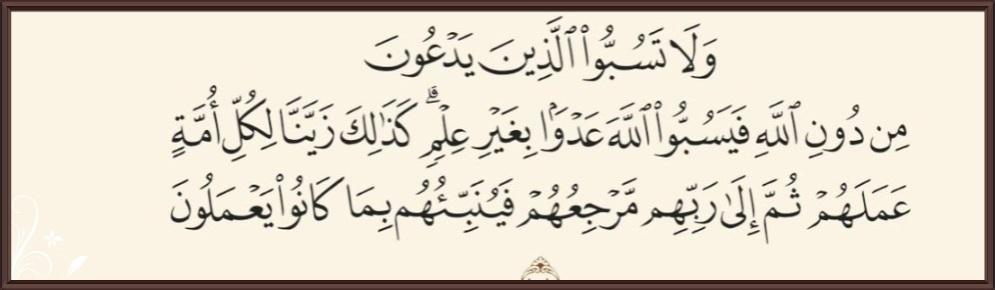 وَلَا تَسُبُّوا۟ ٱلَّذِينَ يَدْعُونَ
مِن دُونِ ٱللَّهِ فَيَسُبُّوا۟ ٱللَّهَ عَدْوًۢا بِغَيْرِ عِلْمٍۢ ۗ كَذَٰلِكَ زَيَّنَّا لِكُلِّ أُمَّةٍ
عَمَلَهُمْ ثُمَّ إِلَىٰ رَبِّهِم مَّرْجِعُهُمْ فَيُنَبِّئُهُم بِمَا كَانُوا۟ يَعْمَلُونَ